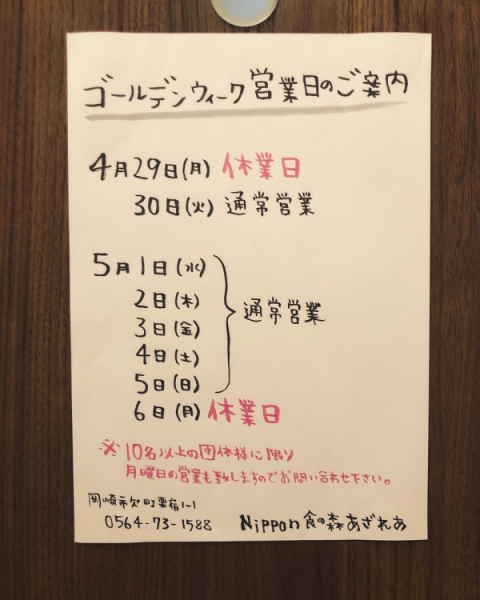 ゴールデンウィーク営業日のご案内
4月29日(月) 休業日
30日(火) 通常営業
5月1日(水)
2日(木)
3日(金) 通常営業
4日(土)
5日(日)
6日(月) 休業日
※10名以上の団体様に限り
月曜日の営業も致しますのでお問い合わせ下さい。
岡崎市欠町栗宿1-1
0564-73-1588 Nippon 食の森あざれあ